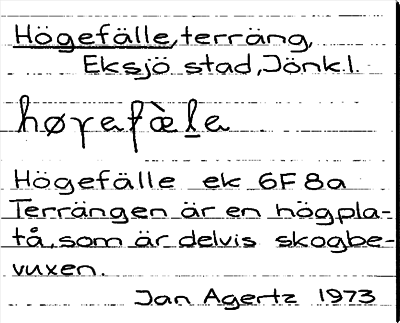 Högefälle, terräng,
Eksjö stad, Jönk.l.
høγefàl̲a
Högefälle ek 6F8a
Terrängen är en högpla-
tå, som är delvis skogbe-
vuxen.
Jan Agertz 1973